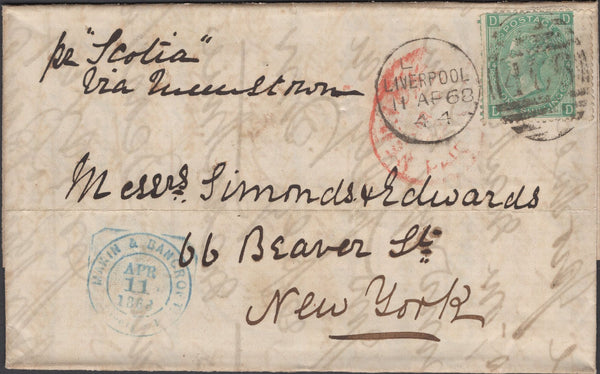 pr "Scotia"
Via Queenstown
L
LIVERPOOL
11 AP 68
44
POSTAGE
D D
L D
Messrs. Simonds & Edwards
66 Beaver St.
New York
MAKIN & BANCROFT
APR
11
1868